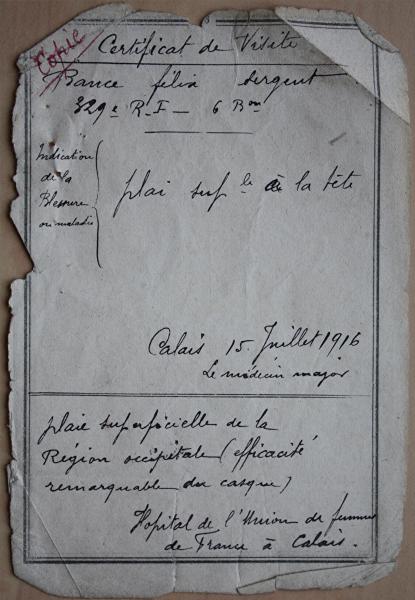 Copie
Certificat de Visite
Bance félix sergent
329e R-I- 6 Bon
Indication
de la
Blessure
ou maladie
plai suple à la tête
Calais 15 Juillet 1916
Le médecin major
plaie superficielle de la
Région occipitale (efficacité
remarquable du casque)
Hopital de l'Union des femmes
de France à Calais.